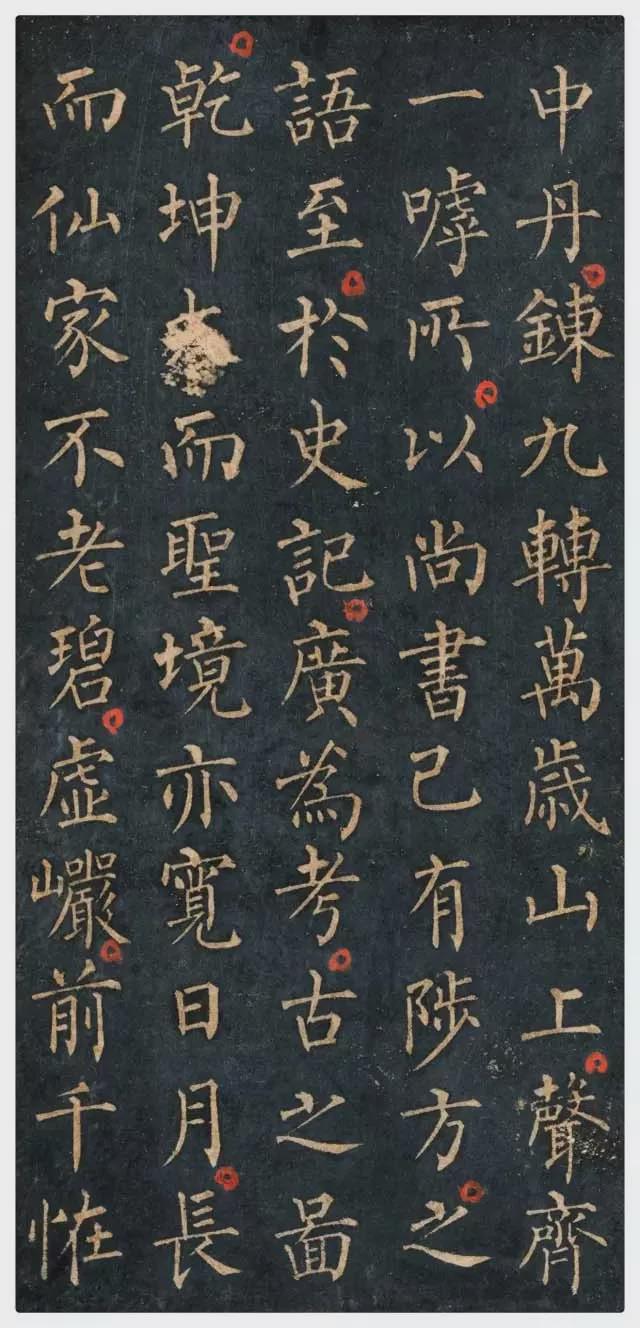 中丹鍊九轉萬歲山上聲齊
一嘑所以尚書已有陟方之
語至於史記廣為考古之啚
乾坤而聖境亦寬日月長
而仙家不老碧虛巗前千恠